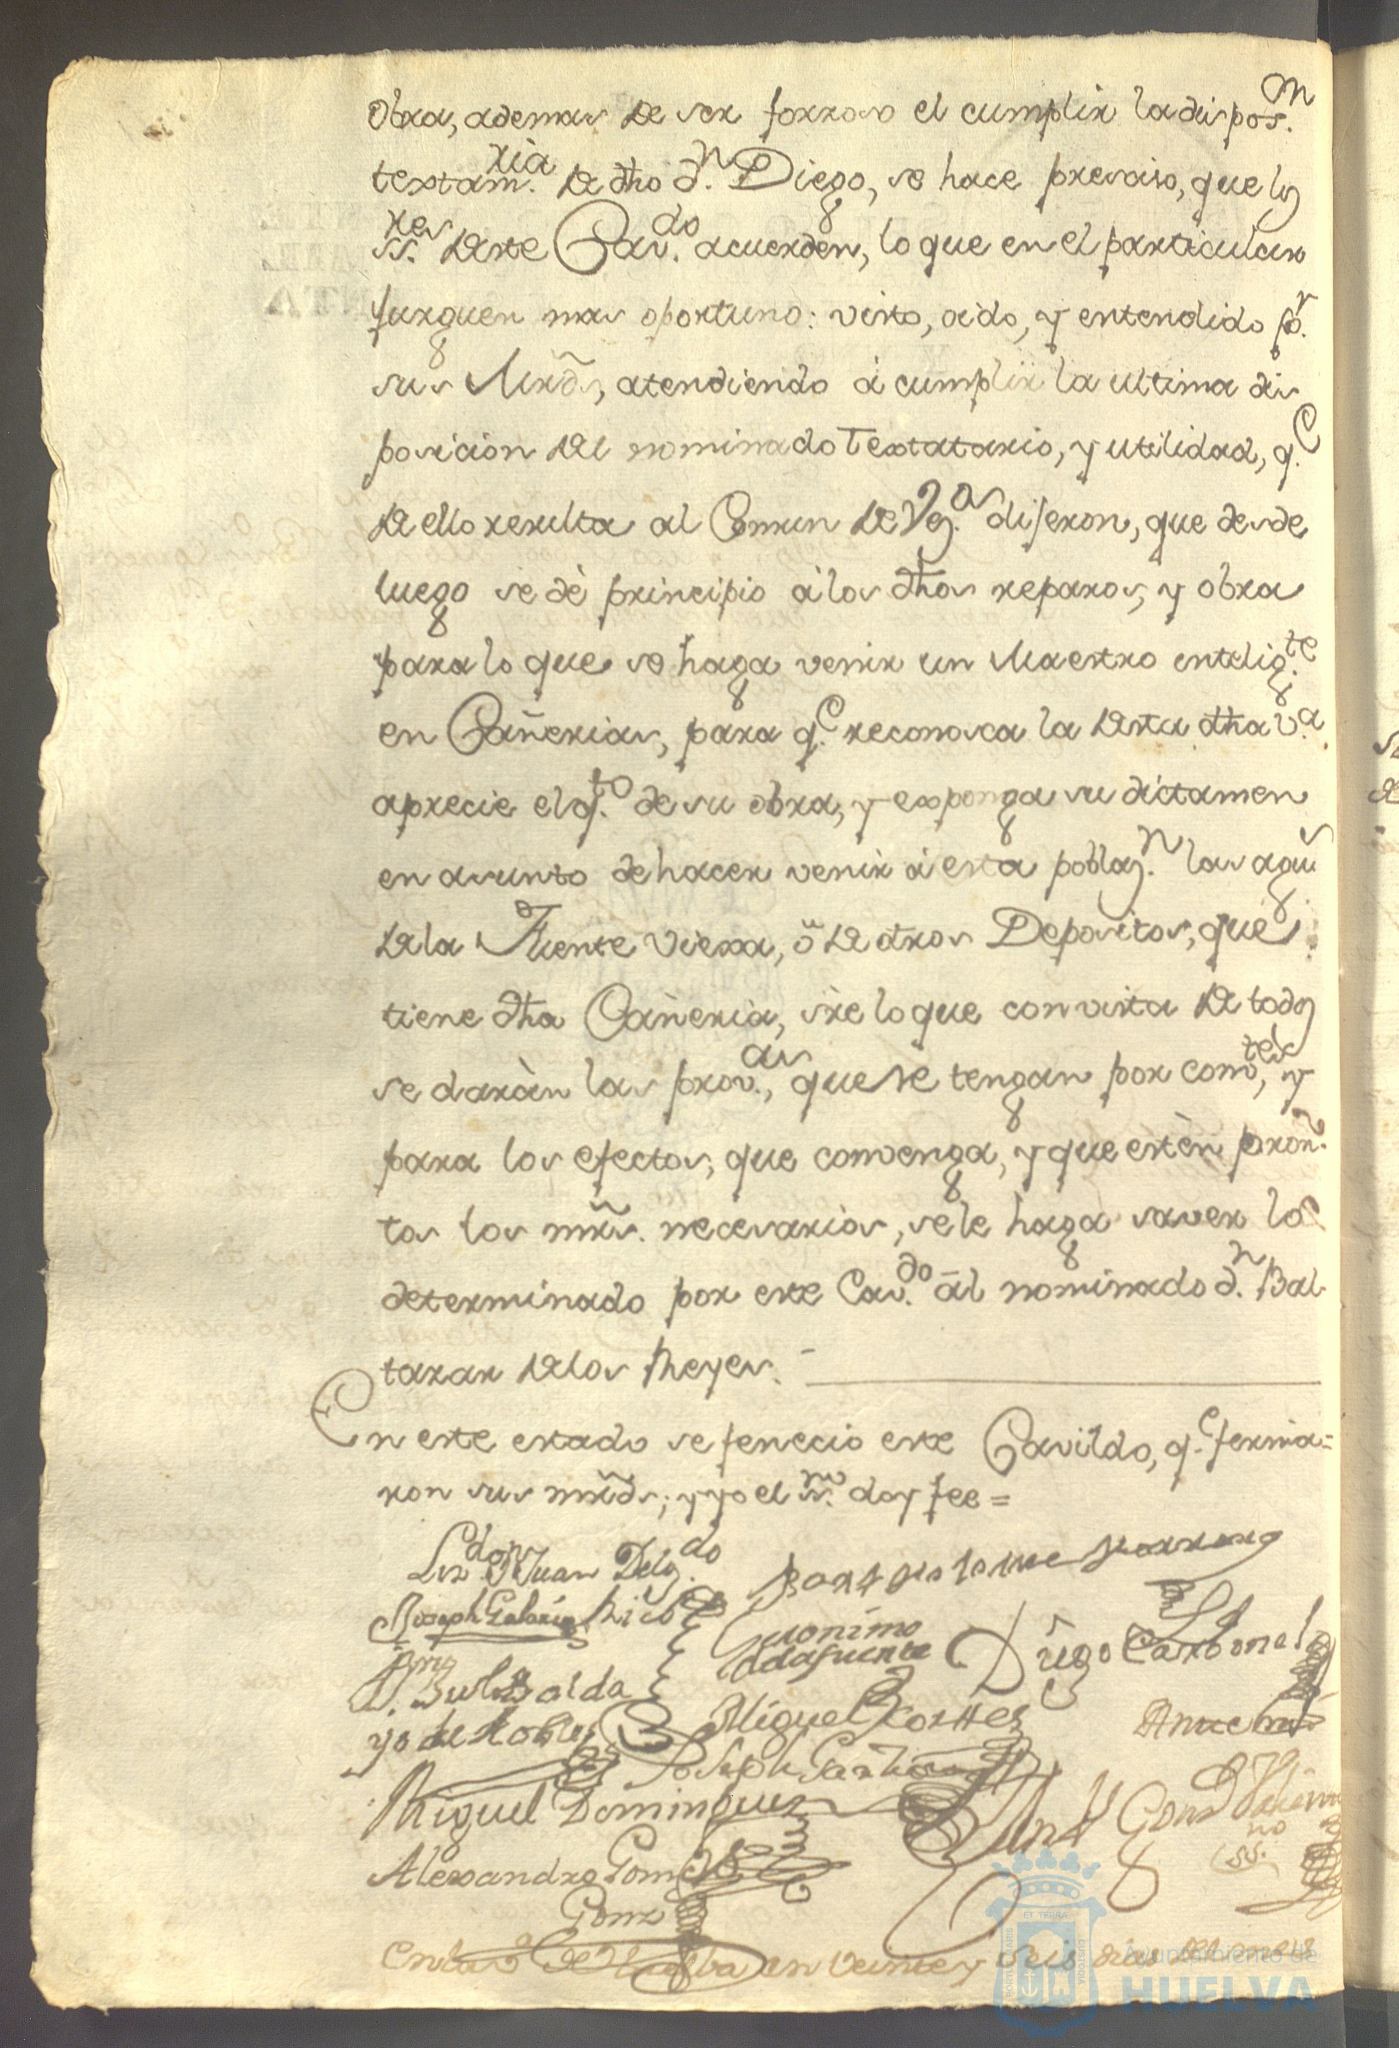 obra, ademas de ser forzoso el cumplir la dispos.on
textam.ria de dho d.n Diego, se hace preciso, que los
ss.res de este Cav.do acuerden, lo que en el particular
jusguen mas oportuno: visto, oido, y entendido po.r
sus Mrds, atendiendo à cumplir la ultima dis
posicion del nominado Testatario, y utilidad, q.e
de ello resulta al Comun de Vz.os dijeron, que desde
luego se dè principio à los dhos reparos, y obra
para lo que se haga venir un Maestro intelig.te
en Cañerias, para q.e reconosca la de esta dha v.a
aprecie el q.to de su obra, y exponga su dictamen
en asunto de hacer venir à esta poblaz.n las agu.s
de la Fuente Viexa, ò de otros Depositos, que
tiene dha Cañeria, sre lo que con vista de todo
se daràn las prov.as, que se tengan por conv.tes, y
para los efectos, que convenga, y que estèn pron
tos los mrs. necesarios, se le haga saver lo
determinado por este Cav.do àl nominado d.n Bal
tazar de los Reyes.
En este estado se fenecio este Cavildo, q.e ferma=
ron sus mrds; y yo el ss.no doy fee=
Liz.do don Juan Delg.do
Joseph
Rico
Geronimo
de la fuente
Diego Carbonel
yo de Robles
Miguel Corttes
Joseph
Miguel Dominguez
Ant.o Gonz
ss.no
Alexandro Gomez
Gonz
En la v.a de Huelba en veinte y seis dias del mes
Ayuntamiento de
HUELVA